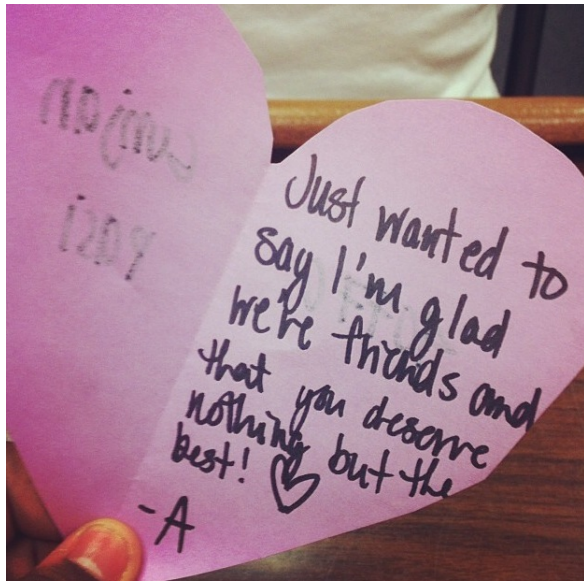 Just wanted to
say I'm glad
we're friends and
that you deserve
nothing but the
best! ♡
-A